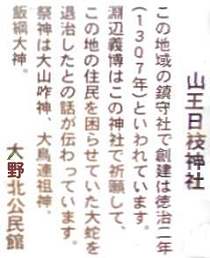 山王日枝神社
この地域の鎮守社で創建は徳治二年
(1307年)といわれています。
淵辺義博はこの神社で祈願して、
この地の住民を困らせていた大蛇を
退治したとの話が伝わっています。
祭神は大山咋神、大鳥連祖神。
飯綱大神。
大野北公民館